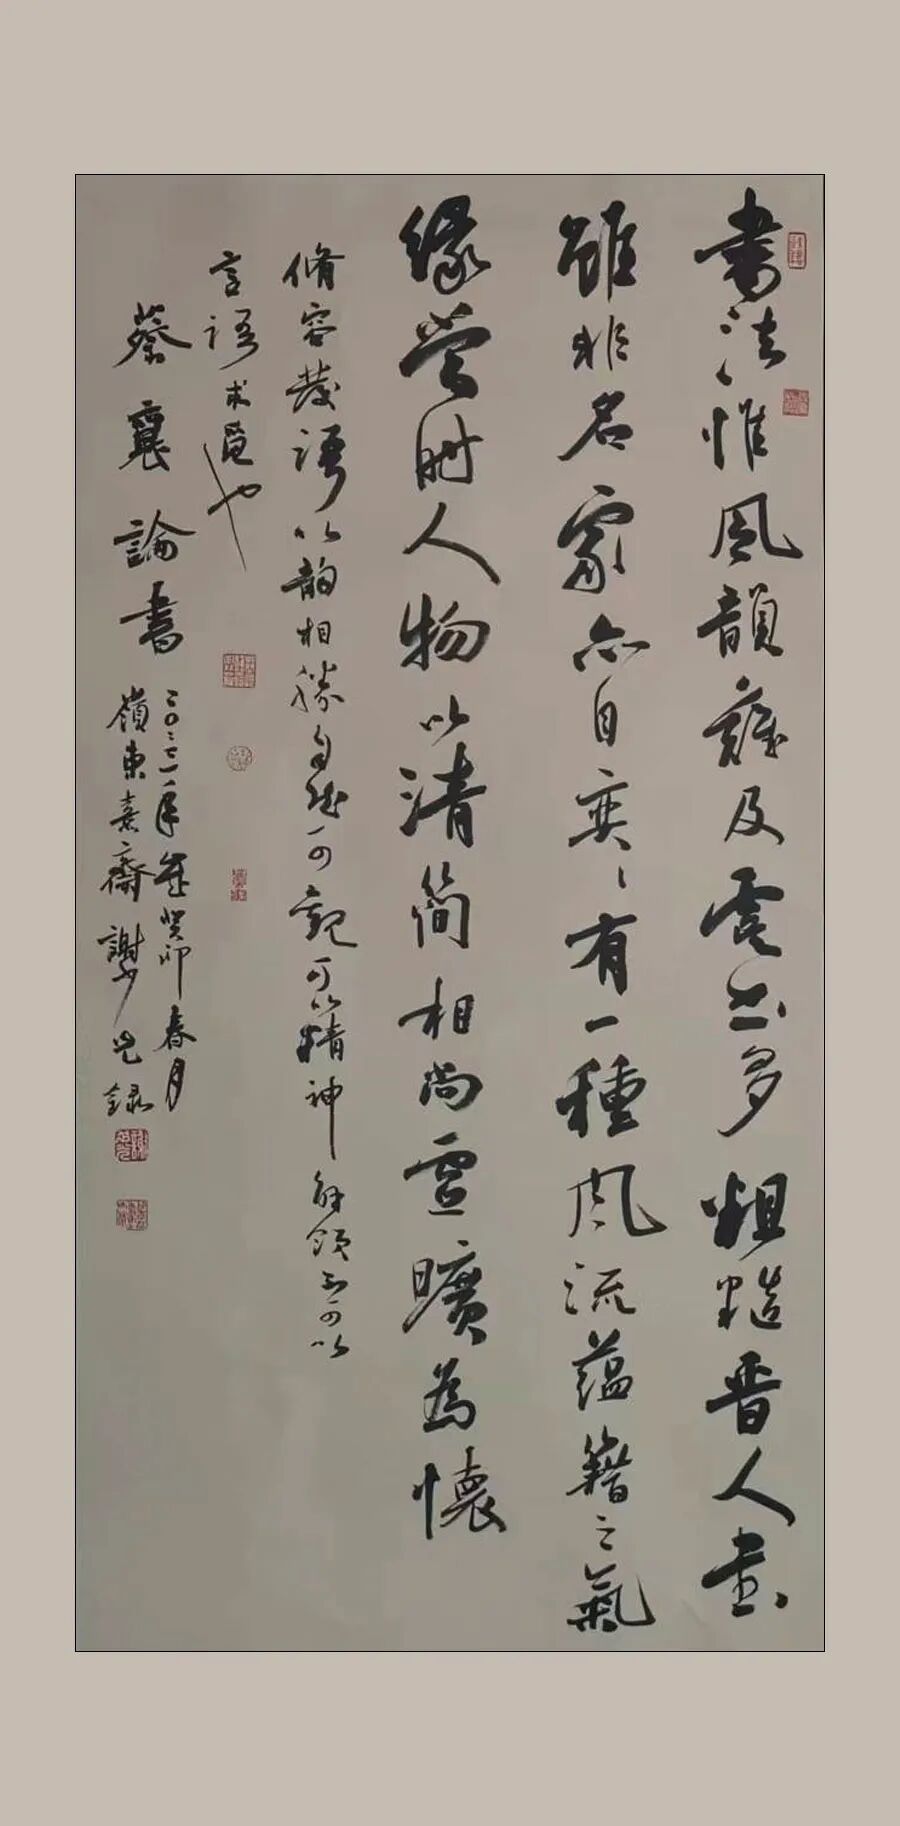 書法惟風韻難及虞书多粗糙晋人書
雖非名家亦自奕々有一種風流蘊籍之氣
緣當時人物以清簡相尚虛曠為懷
脩容發語以韵相勝自然可觀可以精神解領不可以
言語求覓也
蔡襄論書
二〇二三年歲癸卯春月
嶺東齋謝錄